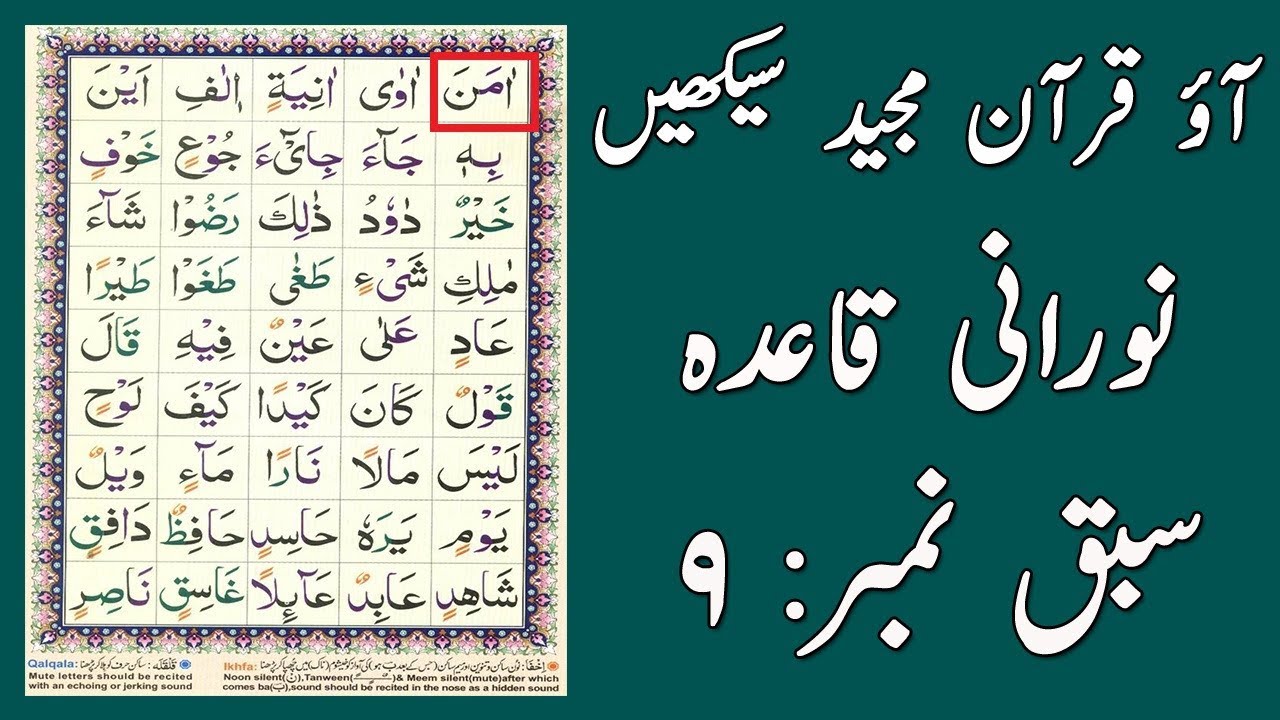 آؤ قرآن مجید سیکھیں
نورانی قاعدہ
سبق نمبر: ۹
اٰمَنَ اٰوٰى اٰنِيَةٍ اٖلٰفِ اَيْنَ
بِهٖ جَآءَ جِایْٓءَ جُوْعٍ خَوْفٍ
خَيْرٌ دَاوٗدُ ذٰلِكَ رَضُوْا شَآءَ
مٰلِكِ شَیْءٍ طَغٰى طَغَوْا طَيْرًا
عَادٍ عَلٰى عَيْنٌ فِيْهِ قَالَ
قَوْلٌ كَانَ كَيْدًا كَيْفَ لَوْحٍ
لَيْسَ مَالًا نَارًا مَآءٍ وَيْلٌ
يَوْمٍ يَرَهٗ حَاسِدٍ حَافِظٌ دَافِقٍ
شَاهِدٍ عَابِدٌ عَآىِٕلًا غَاسِقٍ نَاصِرٍ
اِخفَا: نون ساکن و تنوین اور میم ساکن (جس کے بعد ب ہو) کی آواز کو خیشوم (ناک) میں چھپا کر پڑھنا
Ikhfa: Noon silent(نْ),Tanween(ـًـٍـٌ)& Meem silent(mute)after which
comes ba(بَ),sound should be recited in the nose as a hidden sound
قلقلہ: ساکن حرف کو ہلا کر پڑھنا
Qalqala:
Mute letters should be recited
with an echoing or jerking sound